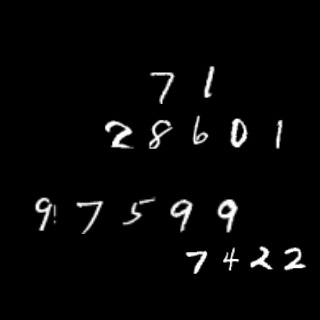 71
28601
97599
7422